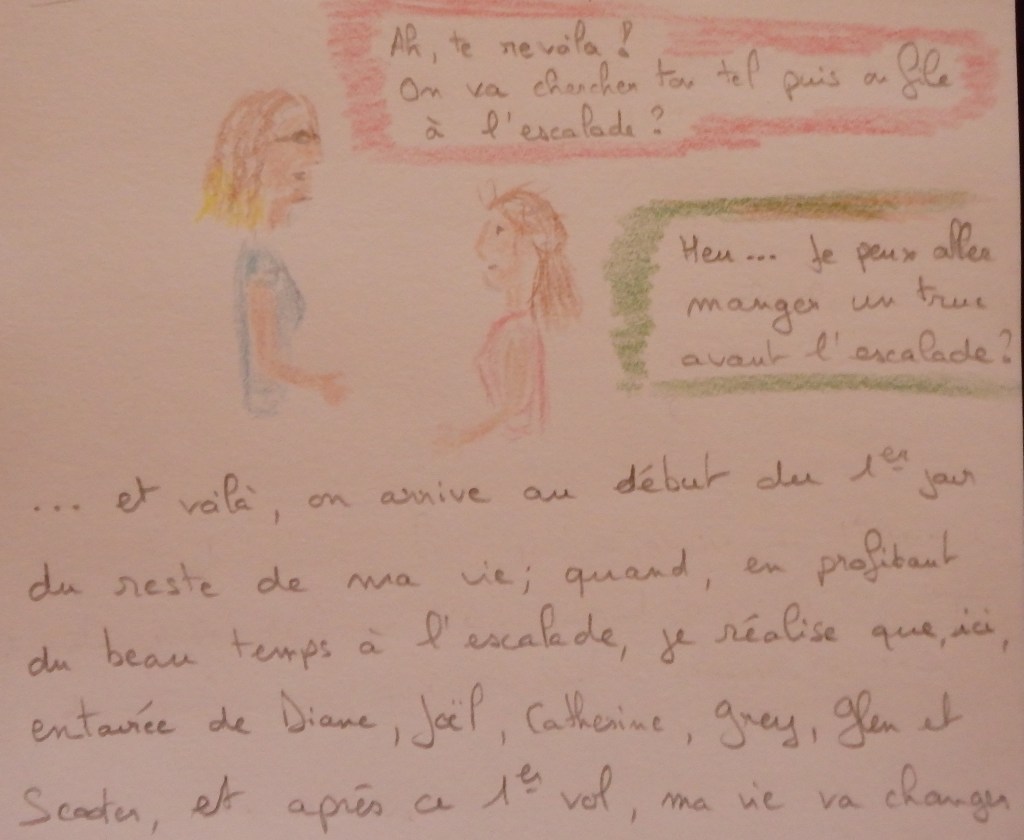 Ah, te revoila !
On va chercher ton tel puis on file
à l'escalade ?
Heu... Je peux aller
manger un truc
avant l'escalade ?
... et voilà, on arrive au début du 1er jour
du reste de ma vie ; quand, en profitant
du beau temps à l'escalade, je réalise que, ici,
entourée de Diane, Joël, Catherine, Grey, Glen et
Scooter, et après ce 1er vol, ma vie va changer